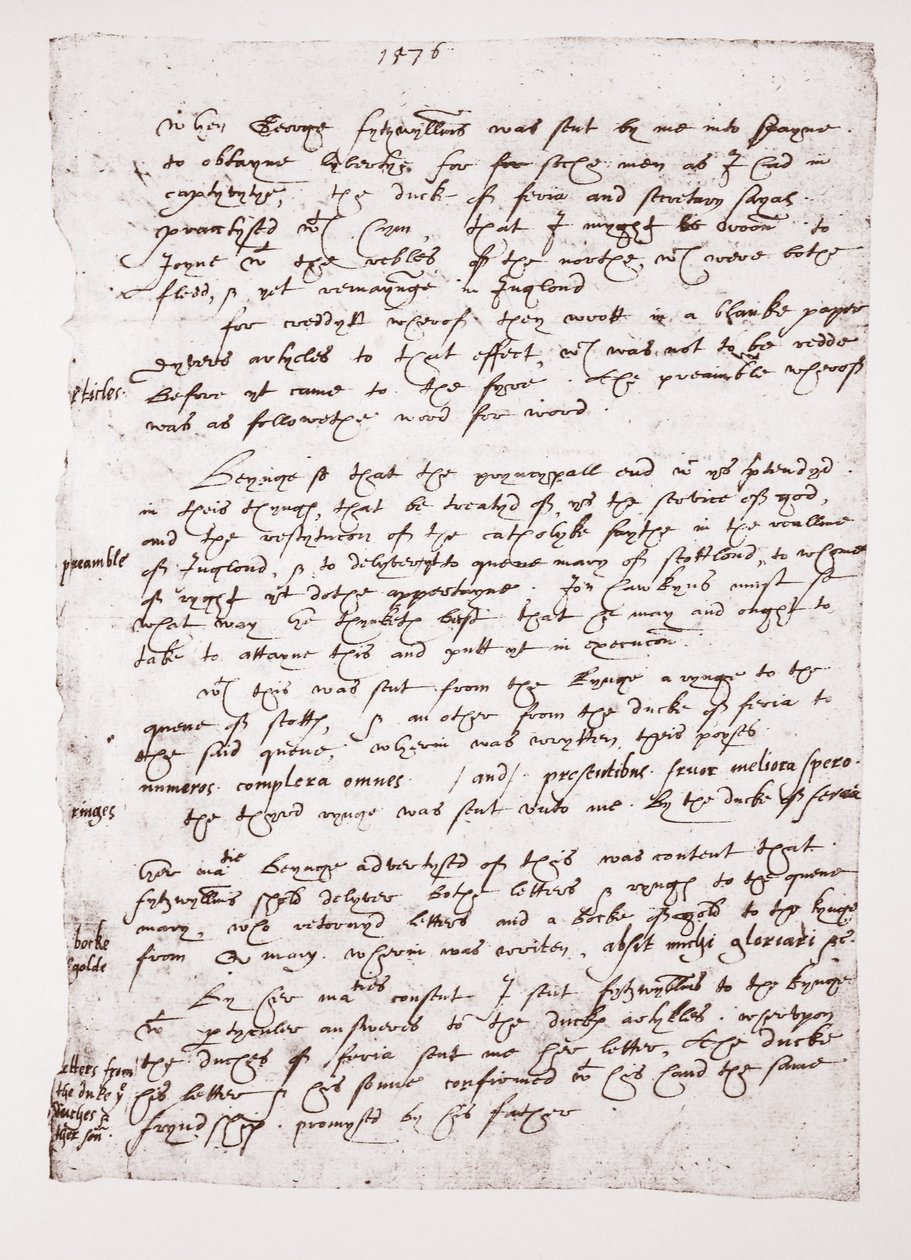 1576
When George fytzwyllms was sent by me into spayne
to obtayne lyberty for for soche men as I had in
captyvytye, the duck of feria and secretary sayas
practysed wt hym, that I myght be woon to
Joyne wt the rebles of the northe, wch were bothe
fleed, & yet remaynynge in Inglond
for creddyt wherof they wrott in a blanke paper
dyvers artycles to that effect, wch was not to be redde
before yt came to the fyre. the preamble wherof
was as followethe word for word
rticles.
Beynge so that the pryncypall end wch ys ptendyd
in theis thyngs, that be treatyd of, ys the service of god,
and the restytucon of the catholyke faythe in the realme
of Inglond, & to delyver yt to quene mary of scottlond, to whome
of ryght yt dothe appertayne. Jon hawkyns must se
what way he thynketh best that he may and ought to
take to attayne this and putt yt in execucon.
preamble
wth this was sent from the kynge a rynge to the
quene of scotts, & an other from the ducke of feria to
the said quene, wherin was wrytten theis posyes
numeros complera omnes /and/ presentibus fruor meliora spero.
the thyrd rynge was sent unto me. By the ducke of feria
ringes
her matie beynge advertysed of this was content that
fytzwyllms shold delyver bothe letters & ryngs to the quene
mary, who retornyd letters and a boke of gold to the kynge
from Q mary. wherin was writen, absit michi gloriari &c.
boke
golde
By her maties consent I sent fytzwyllms to the kynge
wt ptyculer answeres to the ducks artykles. wherupon
the duches of feria sent me her letter, the ducke
his letter & his sonne confirmed wt his hand the same
fryndship promysed by his father
letters from
the duke ye
duches &
ther son.